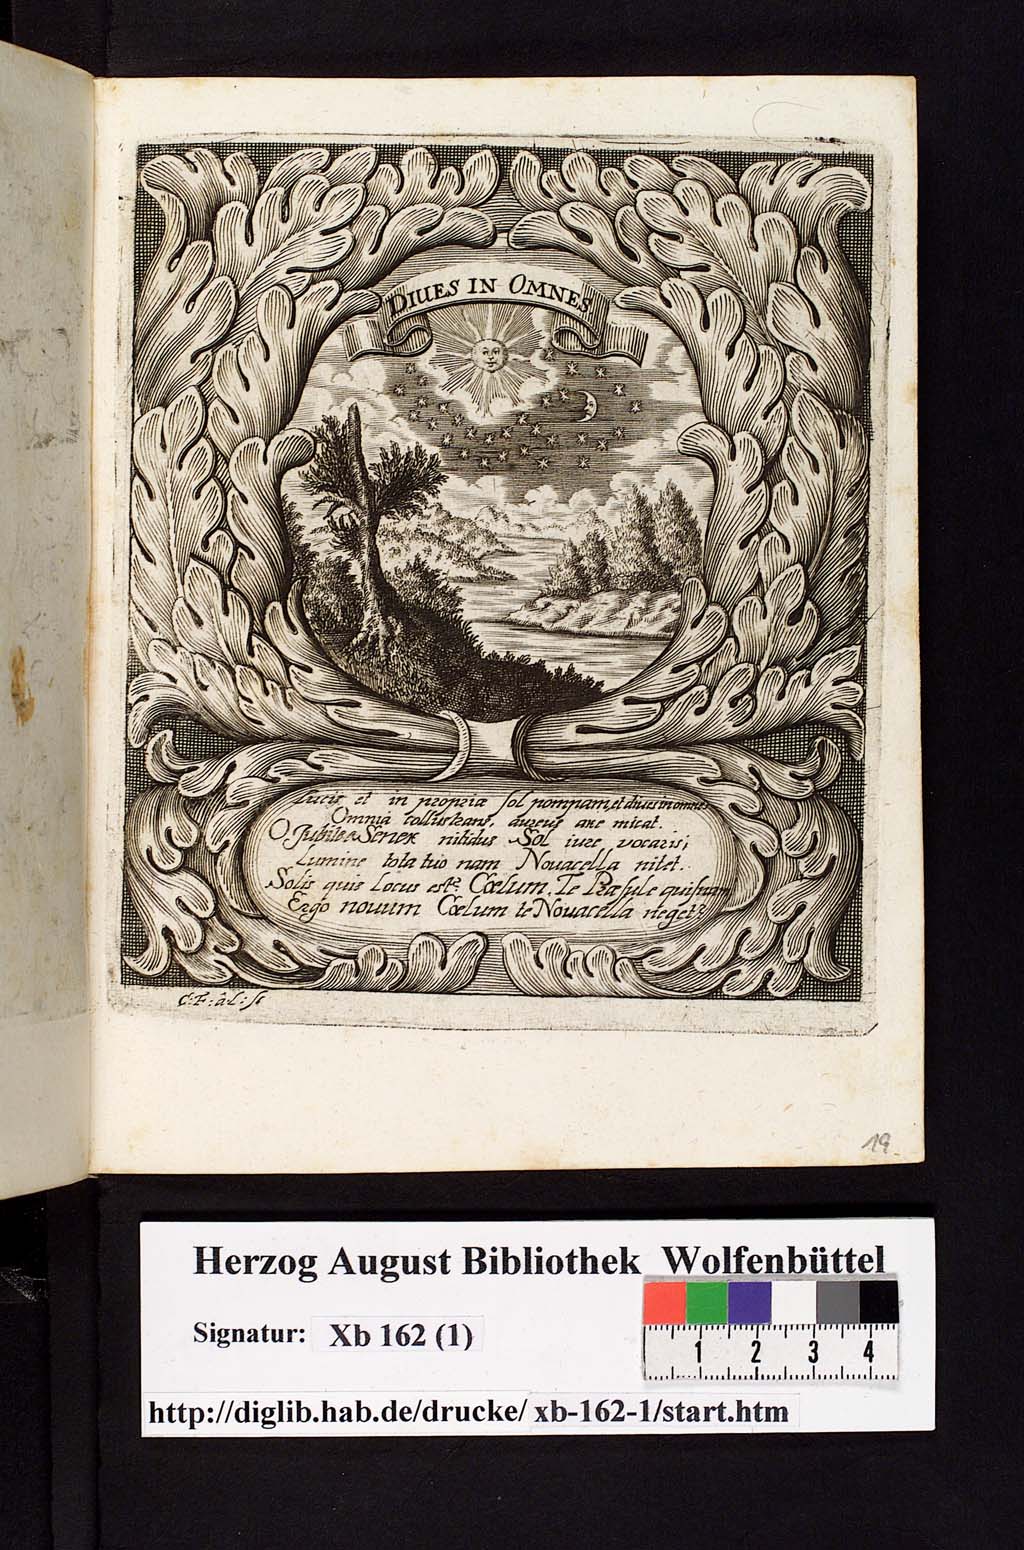 DIUES IN OMNES
Lucis et in propriæ sol pompam, et diues in omnes
Omnia collustrans, aureus axe micat.
O Jubilæe SENEX nitidus Sol iure vocaris;
Lumine tota tuo nam Nouacella nitet.
Solis quis Locus est? Cœlum. Te Præsule quisnam
Ergo nouum Cœlum te Nouacella neget?
C: F: à L: sc
19.
Herzog August Bibliothek Wolfenbüttel
Signatur: Xb 162 (1)
1 2 3 4
http://diglib.hab.de/drucke/ xb-162-1/start.htm